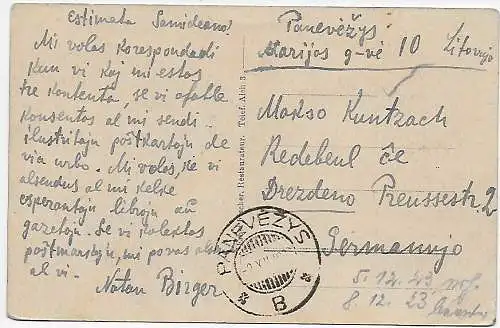 Estimata Samideano!
Mi volas korespondadi
kun vi kaj mi estos
tre kontenta, se vi afable
konsentos al mi sendi
ilustritajn poŝtkartojn de
via urbo. Mi volos, ke vi
alsendus al mi kelke
esperantajn librojn aŭ
gazetojn. Se vi kolektas
poŝtmarkojn, mi povas
al vi.
Natan Birger
Panevėžys
Marijos g-vė 10 Litovujo
Makso Kuntzach
Redebeul ĉe
Drezdeno Preussestr. 2
Germanujo
5. 12. 23
8. 12. 23
PANEVĖŽYS
B